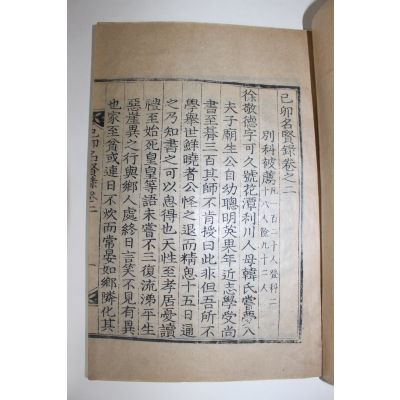 己卯名賢錄卷之二
別科被薦凡一百二十人登科二十八人餘九十二人
徐敬德字可久號花潭利川人母韓氏嘗夢入
夫子廟生公自幼聰明英果年近志學受尚
書至朞三百其師不肯授曰此非但吾所不
學舉世鮮曉者公怪之退而精思十五日通
之乃知書之可以思得也天性至孝居憂讀
禮至始死皇皇等語未嘗不三復流涕平生
惡崖異之行與鄉人處終日言笑不見有異
也家至貧或連日不炊而常晏如鄉隣化其
己卯名賢錄 卷二